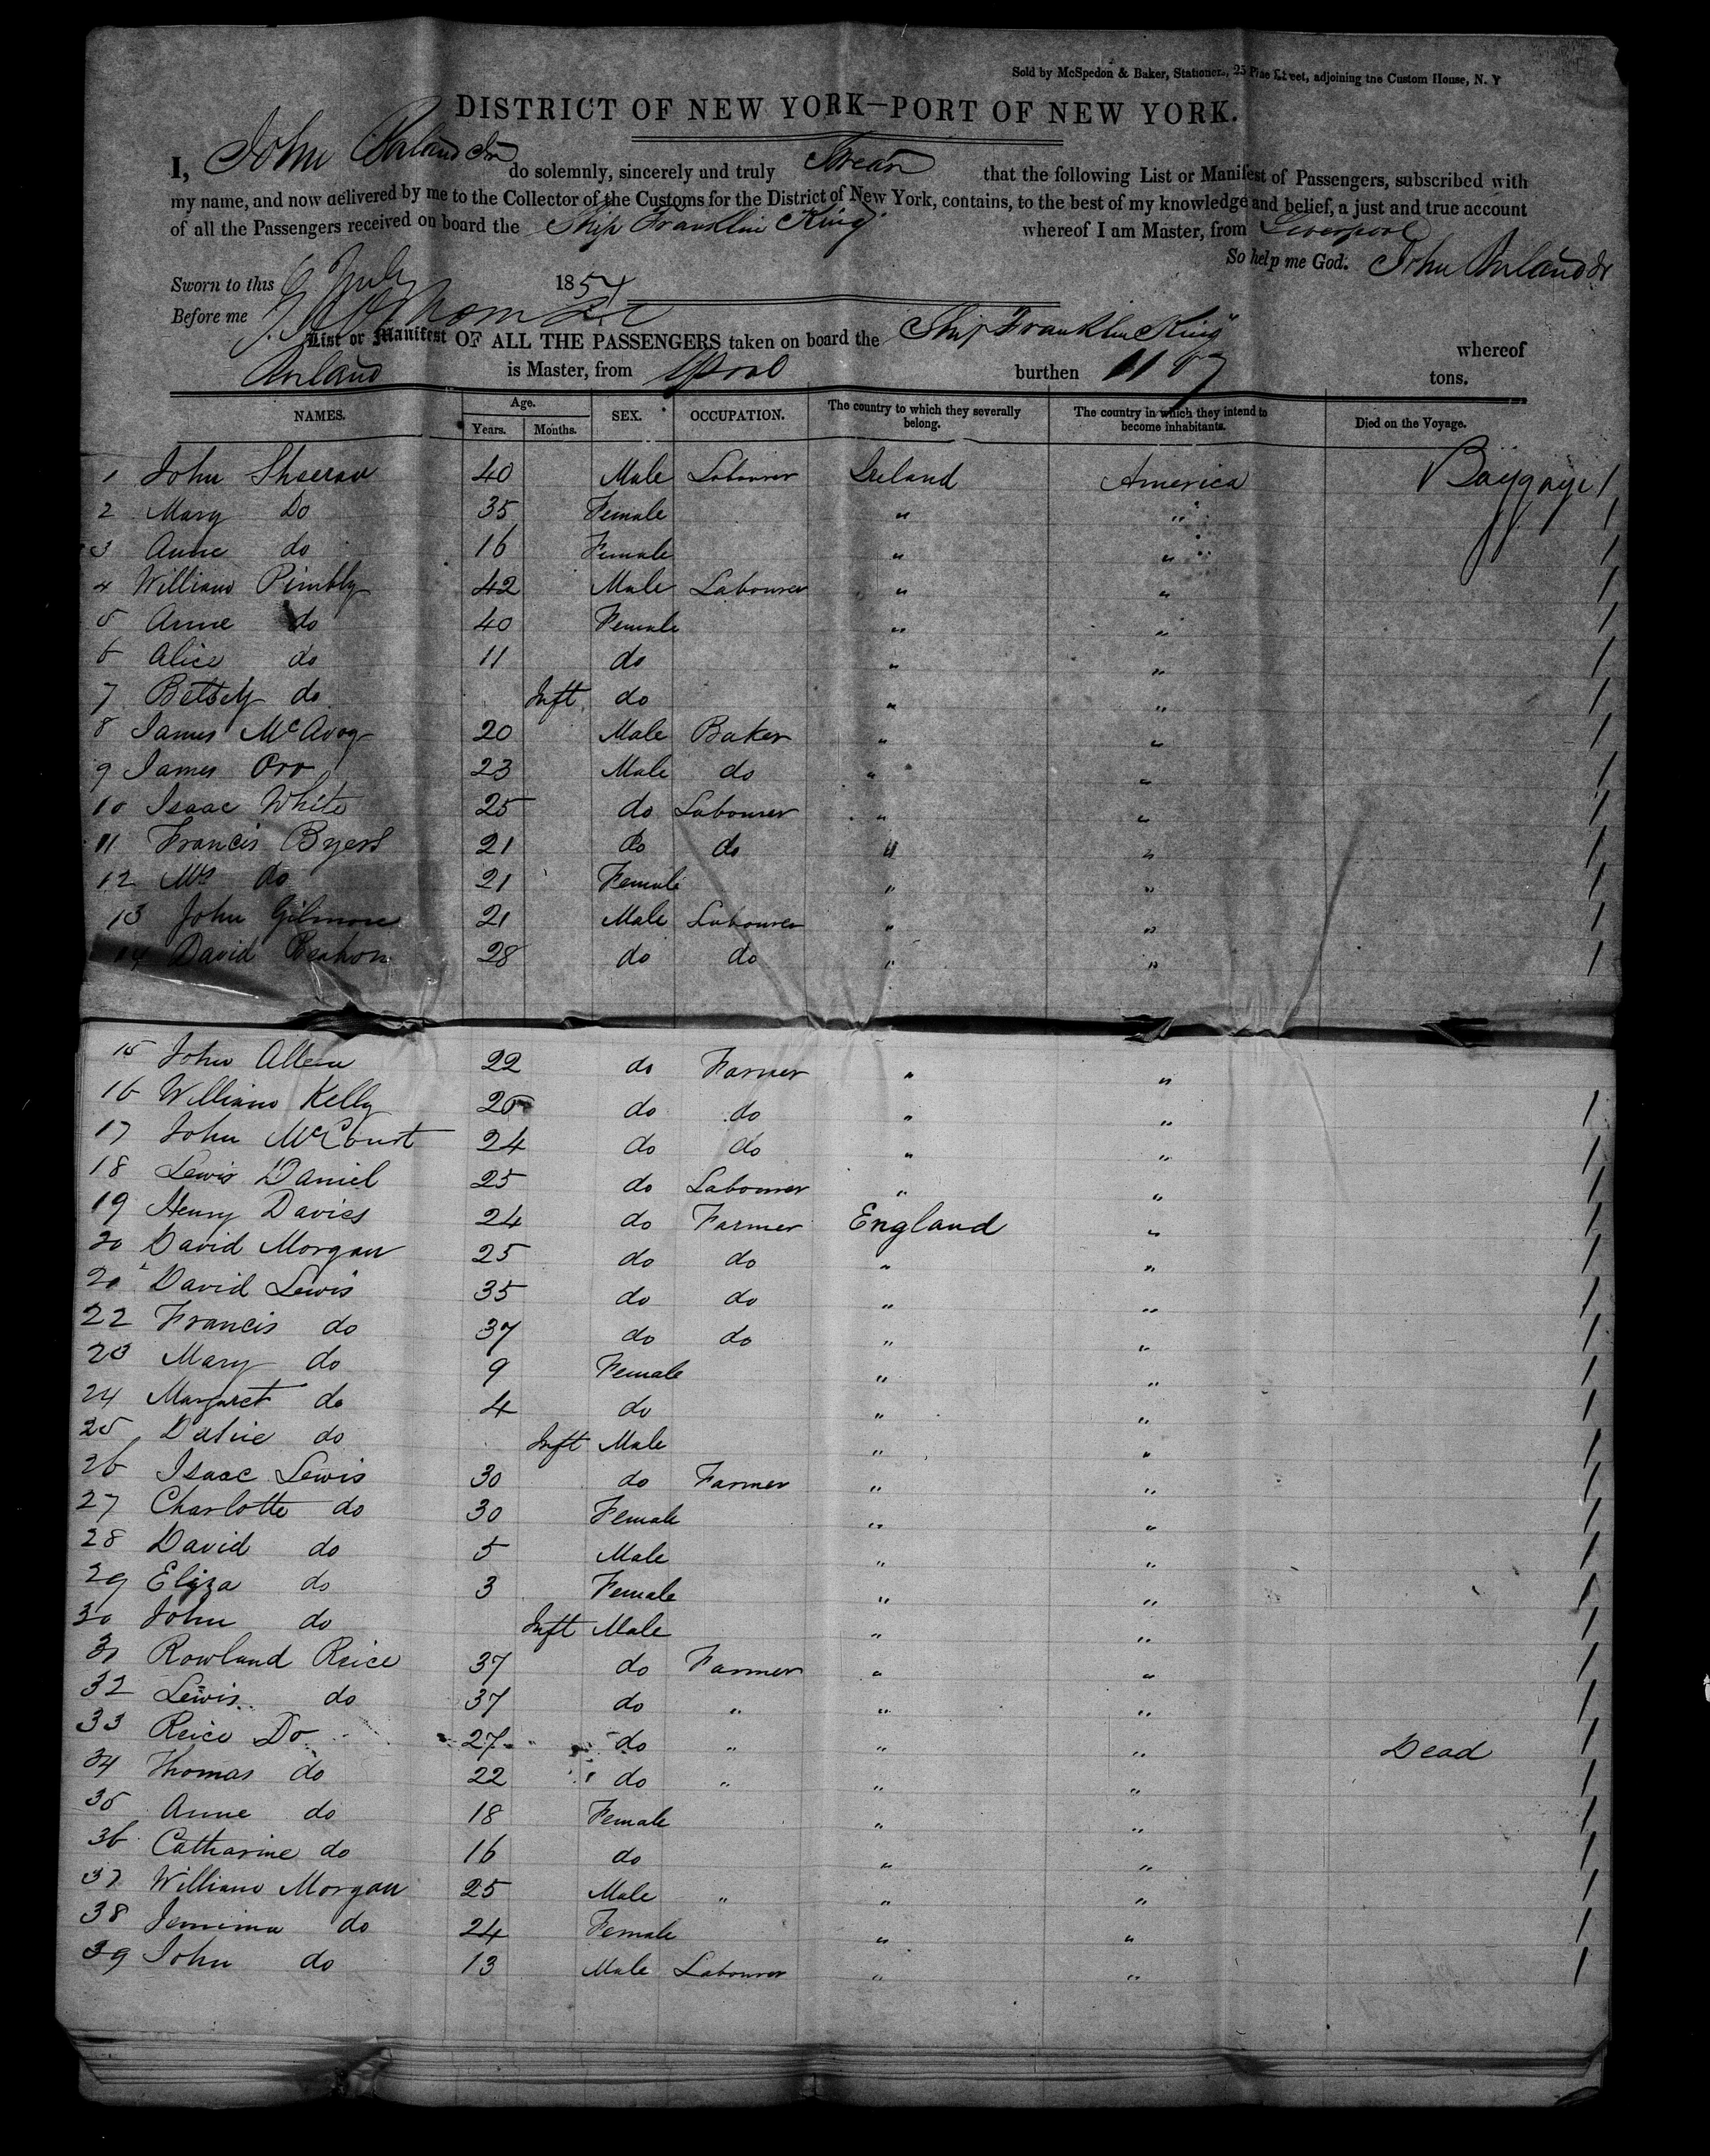 Sold by McSpedon & Baker, Stationers, 25 Pine Street, adjoining the Custom House, N. Y
DISTRICT OF NEW YORK—PORT OF NEW YORK.
I, John do solemnly, sincerely and truly Swear that the following List or Manifest of Passengers, subscribed with
my name, and now delivered by me to the Collector of the Customs for the District of New York, contains, to the best of my knowledge and belief, a just and true account
of all the Passengers received on board the Ship Franklin King whereof I am Master, from Liverpool
So help me God. John
Sworn to this 6 July 1854
Before me
List or Manifest OF ALL THE PASSENGERS taken on board the Ship Franklin King whereof
is Master, from Lpool burthen tons.
NAMES. Age. Years. Months. SEX. OCCUPATION. The country to which they severally belong. The country in which they intend to become inhabitants. Died on the Voyage.
1 John Sheeran 40 Male Labourer Ireland America Baggage 1
2 Mary Do 35 Female " " 1
3 Anne do 16 Female " " 1
4 William Pimbly 42 Male Labourer " " 1
5 Anne do 40 Female " " 1
6 Alice do 11 do " " 1
7 Betsey do Inft do " " 1
8 James McAvoy 20 Male Baker " " 1
9 James Orr 23 Male do " " 1
10 Isaac White 25 do Labourer " " 1
11 Francis Byers 21 do do " " 1
12 Mrs do 21 Female " " 1
13 John Gilmore 21 Male Labourer " " 1
14 David 28 do do " " 1
15 John Allen 22 do Farmer " "
16 William Kelly 25 do do " " 1
17 John McCourt 24 do do " " 1
18 Lewis Daniel 25 do Labourer " " 1
19 Henry Davies 24 do Farmer England " 1
20 David Morgan 25 do do " " 1
21 David Lewis 35 do do " " 1
22 Francis do 37 do do " " 1
23 Mary do 9 Female " " 1
24 Margaret do 4 do " " 1
25 do Inft Male " " 1
26 Isaac Lewis 30 do Farmer " " 1
27 Charlotte do 30 Female " " 1
28 David do 5 Male " " 1
29 Eliza do 3 Female " " 1
30 John do Inft Male " " 1
31 Rowland Reice 37 do Farmer " " 1
32 Lewis do 37 do " " " 1
33 Reice Do 27 do " " " Dead 1
34 Thomas do 22 do " " " 1
35 Anne do 18 Female " " 1
36 Catharine do 16 do " " 1
37 William Morgan 25 Male " " " 1
38 Jemima do 24 Female " " 1
39 John do 13 Male Labourer " " 1